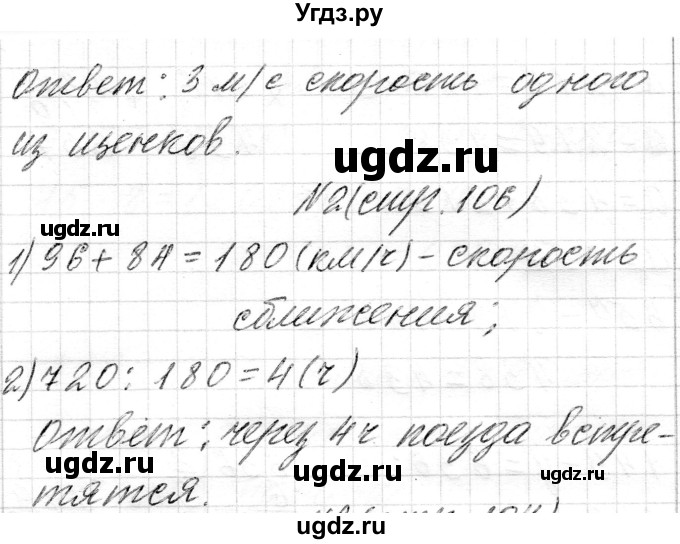 Угдз.ру
Ответ: 3 м/с скорость одного
из щенков.
ugdz.ru
№2(стр. 106)
ugdz.ru
1) 96 + 84 = 180 (км/ч) - скорость
сближения;
ugdz.ru
2) 720 : 180 = 4 (ч)
Ответ: через 4ч поезда встре-
ugdz.ru ugdz.ru ugdz.ru
тятся.
ugdz.ru